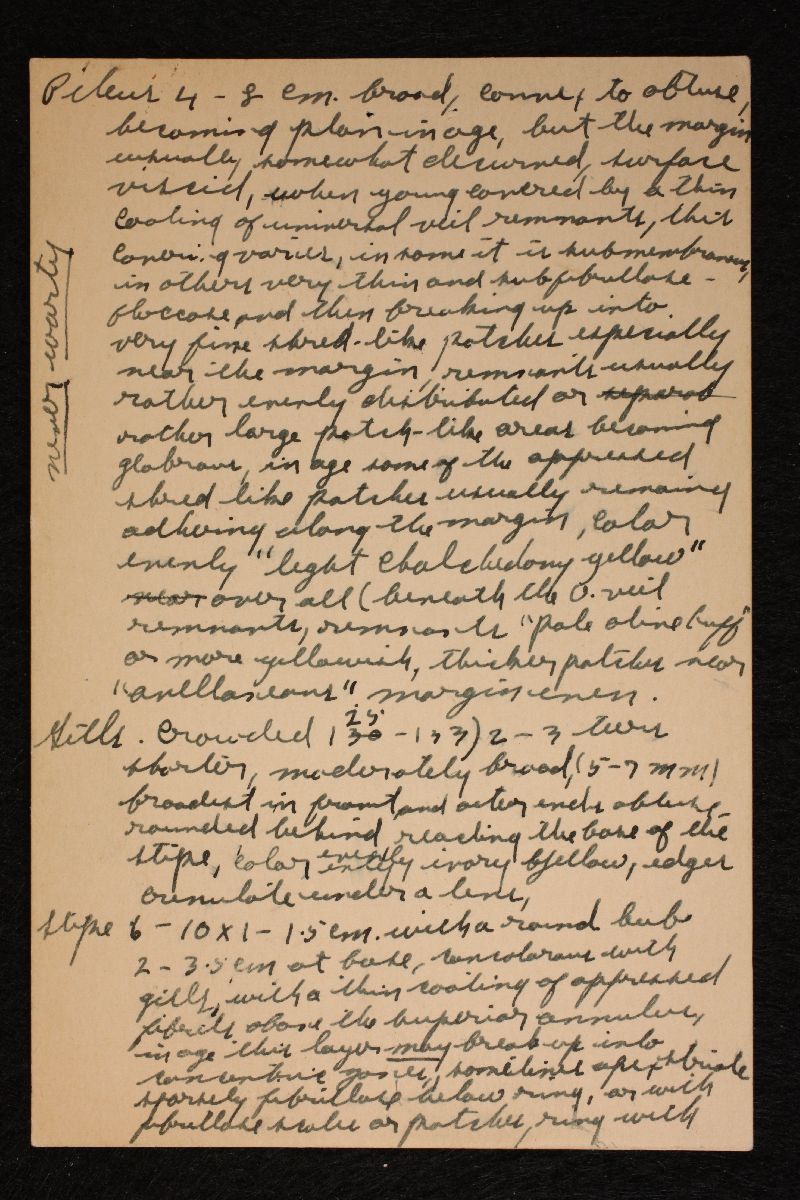 Pileus 4 - 8 cm. broad, convex to obtuse,
becoming plain in age, but the margin
usually somewhat decurved, surface
viscid, when young covered by a thin
coating of universal veil remnants, this
covering varies, in some it is submembranous,
in others very thin and subfibrillose -
floccose and then breaking up into
very fine shred-like patches especially
near the margin, remnants usually
rather evenly distributed or separab
rather large patch-like areas becoming
glabrous, in age some of the appressed
shred like patches usually remaing
adhering along the margin, color
evenly "light Chalchedony yellow"
near over all (beneath the U. veil
remnants, remnants "pale olive buff"
or more yellowish, thicker patches near
"avellaneous" margin even.
never warty
Gills. Crowded (130 25 -133) 2 - 3 tiers
shorter, moderately broad, (5-7 mm)
broadest in front and outer ends obtuse,
rounded behind reaching the base of the
stipe, color evenly ivory yellow, edges
crenulate under a lens,
Stipe 6 - 10 x 1 - 1.5 cm. with a round bulb
2 - 3.5 cm at base, concolorous with
gills, with a thin coating of appressed
fibrils above the superior annulus,
in age this layer may break up into
concentric zones, sometimes apex striate
sparsely fibrillose below ring, or with
fibrillose scales or patches, ring with